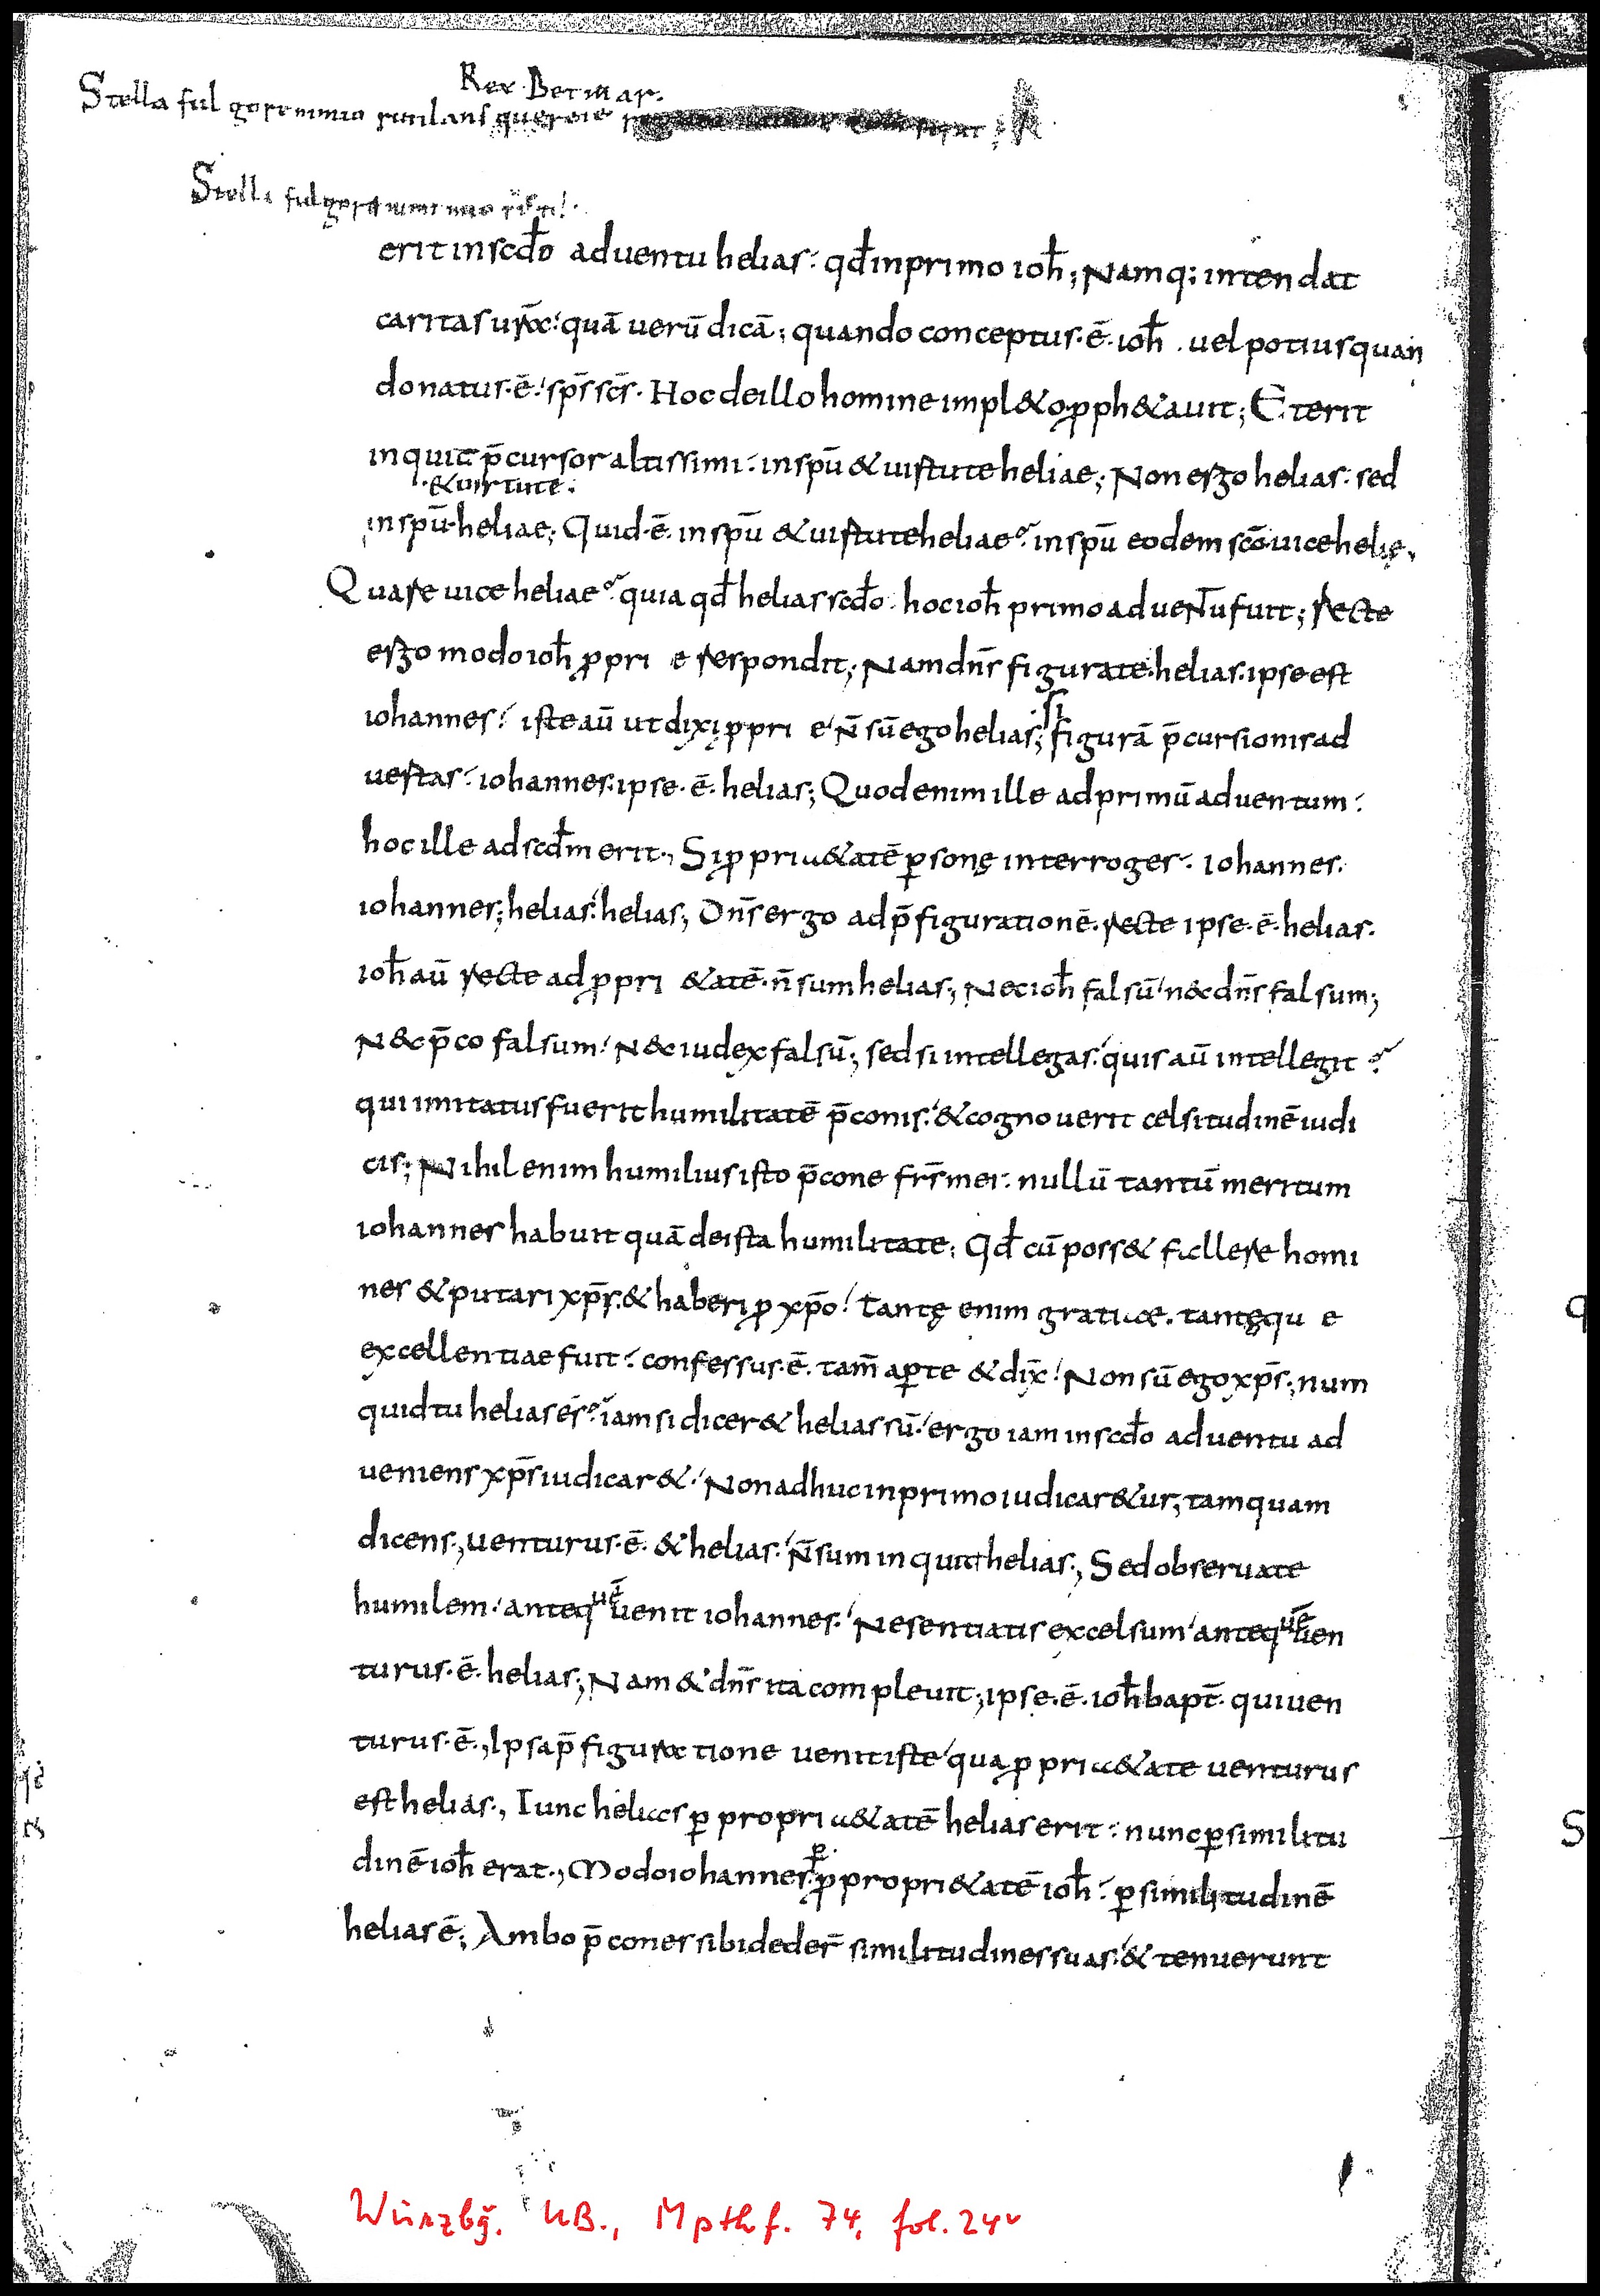 Rex Betmar.
Stella fulgore nimio rutilans que
Stella fulgore nimio
erit in scdo aduentu helias. qđ in primo ioh̄; Namq; intendat
caritas urā. quā uerū dicā; quando conceptus · ē · ioh̄ . uel potius quan
do natus · ē · sp̄s sc̄s · Hoc de illo homine impl&o ꝓph&auit; Et erit
inquit p̄cursor altissimi · in spū & uirtute heliae; Non ergo helias · sed
· & uirtute ·
in spū heliae; Quid · ē · in spū & uirtute heliae? in spū eodem scō · uice helię.
Quare uice heliae? quia qđ helias scdo · hoc ioh̄ primo aduentu fuit; recte
ergo modo ioh̄ ꝓpri e respondit; Nam dn̄s figurate · helias · ipse est
iohannes · iste aū ut dixi ꝓpri e n̄ sū ego helias; si figurā p̄cursionis ad
uertas · iohannes · ipse · ē · helias; Quod enim ille ad primū aduentum ·
hoc ille ad scdm erit; Si ꝓpri&atē ꝑsonę interroges · iohannes ·
iohannes; helias · helias; Dn̄s ergo ad p̄figurationē · recte ipse · ē · helias ·
ioh̄ aū recte ad ꝓpri &atē · n̄ sum helias; Nec ioh̄ falsū n&c dn̄s falsum;
N&c p̄co falsum · N&c iudex falsū; sed si intellegas · quis aū intellegit ?
qui imitatus fuerit humilitatē p̄conis · & cognouerit celsitudinē iudi
cis; Nihil enim humilius isto p̄cone fr̄s mei · nullū tantū meritum
iohannes habuit quā de ista humilitate; Qđ cū poss& fallere homi
nes & putari xp̄s · & haberi ꝓ xp̄o · tantę enim gratiae · tantęqu e
excellentiae fuit · confessus · ē · tam̄ aꝑte & dix̄ · Non sū ego xp̄s; num
quid tu helias és? iam si dicer& helias sū · ergo iam in scdo aduentu ad
ueniens xp̄s iudicar& · Non adhuc in primo iudicar&ur; tamquam
dicens; uenturus · ē · & helias · n̄ sum inquit helias; Sed obseruate
humilem · anteqúe uenit iohannes · Ne sentiatis excelsum anteqúe uen
turus · ē · helias; Nam & dn̄s ita compleuit; ipse · ē · ioh̄ bapt̄ · qui uen
turus · ē; Ipsa p̄figuratione uenit iste qua ꝓpri&ate uenturus
est helias; Tunc helias ꝑ propri&atē helias erit · nunc ꝑ similitu
dinē ioh̄ erat; Modo iohannes · ꝑ propri&atē ioh̄ · ꝑ similitudinē
helias ē; Ambo p̄cones sibi deder̄ similitudines suas · & tenuerunt
Würzbg. UB., Mpthf. 74, fol. 24v